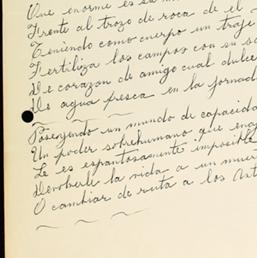 Que enorme es la
Frente al trozo de roca de el
Teniendo como cuerpo un traje
Fertiliza los campos con su
De corazon de amigo cual dulce
De agua fresca en la jornad
Poseyendo un mundo de capacida
Un poder sobrehumano que ena
Le es espantosamente imposible
Devolverle la vida a un muer
O cambiar de ruta a los